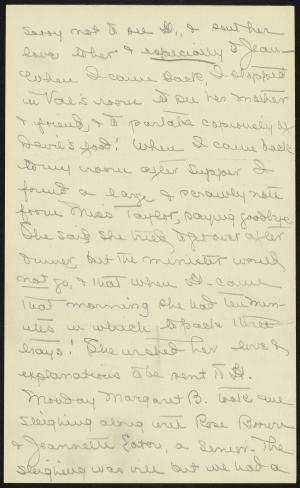 sorry not to see H., & sent her
love to her & especially to Jean -
When I came back, I stopped
in Val's room to see her mother
& friend, & to partake copiously of
Devil's food! When I came back
to my room after supper I
found a large & scrawly note
from Miss Taylor, saying goodbye.
She said she tried to get over after
dinner, but the minister would
not go, & that when H. came
that morning she had ten min-
utes in which to pack three
trays! She wished her love &
explanations to be sent to H.
Monday Margaret B. took me
sleighing along with Rose Brown
& Jeannette Eaton, a Senior. The
sleighing was vile but we had a